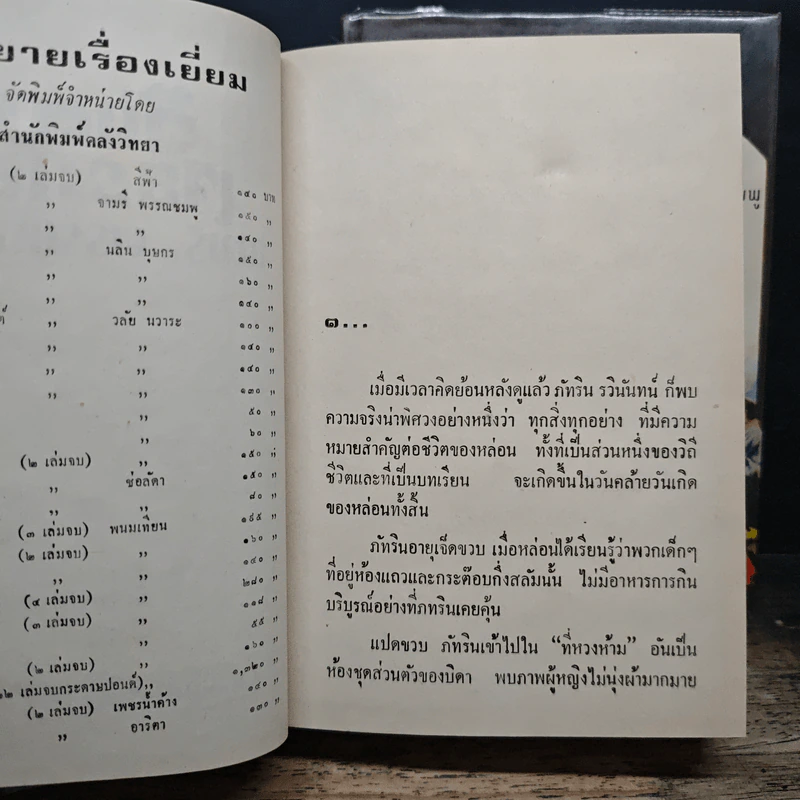 ยายเรื่องเยี่ยม
จัดพิมพ์จำหน่ายโดย
สำนักพิมพ์คลังวิทยา
(๒ เล่มจบ) สีฟ้า ๑๔๐ บาท
,, จามรี พรรณชมพู ๑๕๐ ,,
,, ,, ๑๔๐ ,,
,, นลิน บุษกร ๑๕๐ ,,
,, ,, ๑๖๐ ,,
,, ,, ๑๔๐ ,,
์ ,, วลัย นวาระ ๑๐๐ ,,
,, ,, ๑๔๐ ,,
,, ,, ๑๔๐ ,,
,, ,, ๑๓๐ ,,
,, ๕๐ ,,
,, ๖๐ ,,
(๒ เล่มจบ) ,, ๑๕๐ ,,
,, ช่อลัดา ๑๕๐ ,,
,, ๘๐ ,,
(๓ เล่มจบ) พนมเทียน ๑๙๕ ,,
(๒ เล่มจบ) ,, ๑๖๐ ,,
,, ,, ๑๔๐ ,,
(๔ เล่มจบ) ,, ๒๘๐ ,,
(๓ เล่มจบ) ,, ๑๑๘ ,,
,, ๕๕ ,,
(๒ เล่มจบ) ,, ๑๖๐ ,,
๑๒ เล่มจบกระดาษปอนด์) ,, ๑,๓๒๐ ,,
(๒ เล่มจบ) เพชรน้ำค้าง ๑๔๐ ,,
,, อาริตา ๑๓๐ ,,
๑...
เมื่อมีเวลาคิดย้อนหลังดูแล้ว ภัทริน รวินันทน์ ก็พบ
ความจริงน่าพิศวงอย่างหนึ่งว่า ทุกสิ่งทุกอย่าง ที่มีความ
หมายสำคัญต่อชีวิตของหล่อน ทั้งที่เป็นส่วนหนึ่งของวิถี
ชีวิตและที่เป็นบทเรียน จะเกิดขึ้นในวันคล้ายวันเกิด
ของหล่อนทั้งสิ้น
ภัทรินอายุเจ็ดขวบ เมื่อหล่อนได้เรียนรู้ว่าพวกเด็กๆ
ที่อยู่ห้องแถวและกระต๊อบกึ่งสลัมนั้น ไม่มีอาหารการกิน
บริบูรณ์อย่างที่ภทรินเคยคุ้น
แปดขวบ ภัทรินเข้าไปใน “ที่หวงห้าม” อันเป็น
ห้องชุดส่วนตัวของบิดา พบภาพผู้หญิงไม่นุ่งผ้ามากมาย